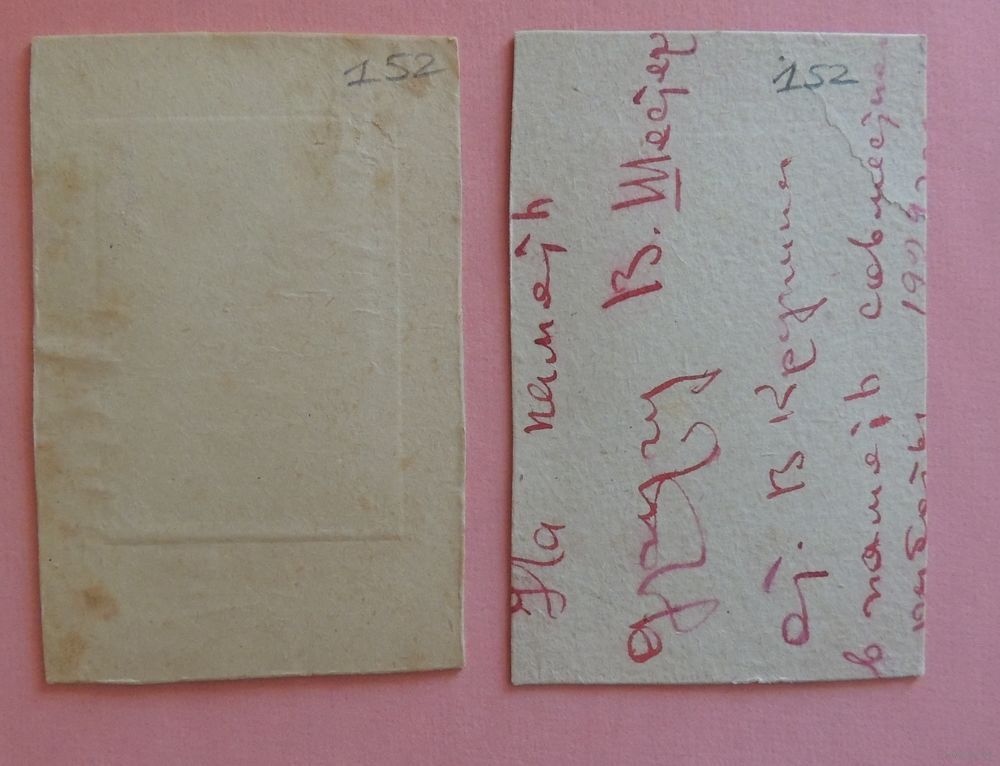 152
152
На память
другу В. Шестер
от В Крупина
в память совместн
работы 194